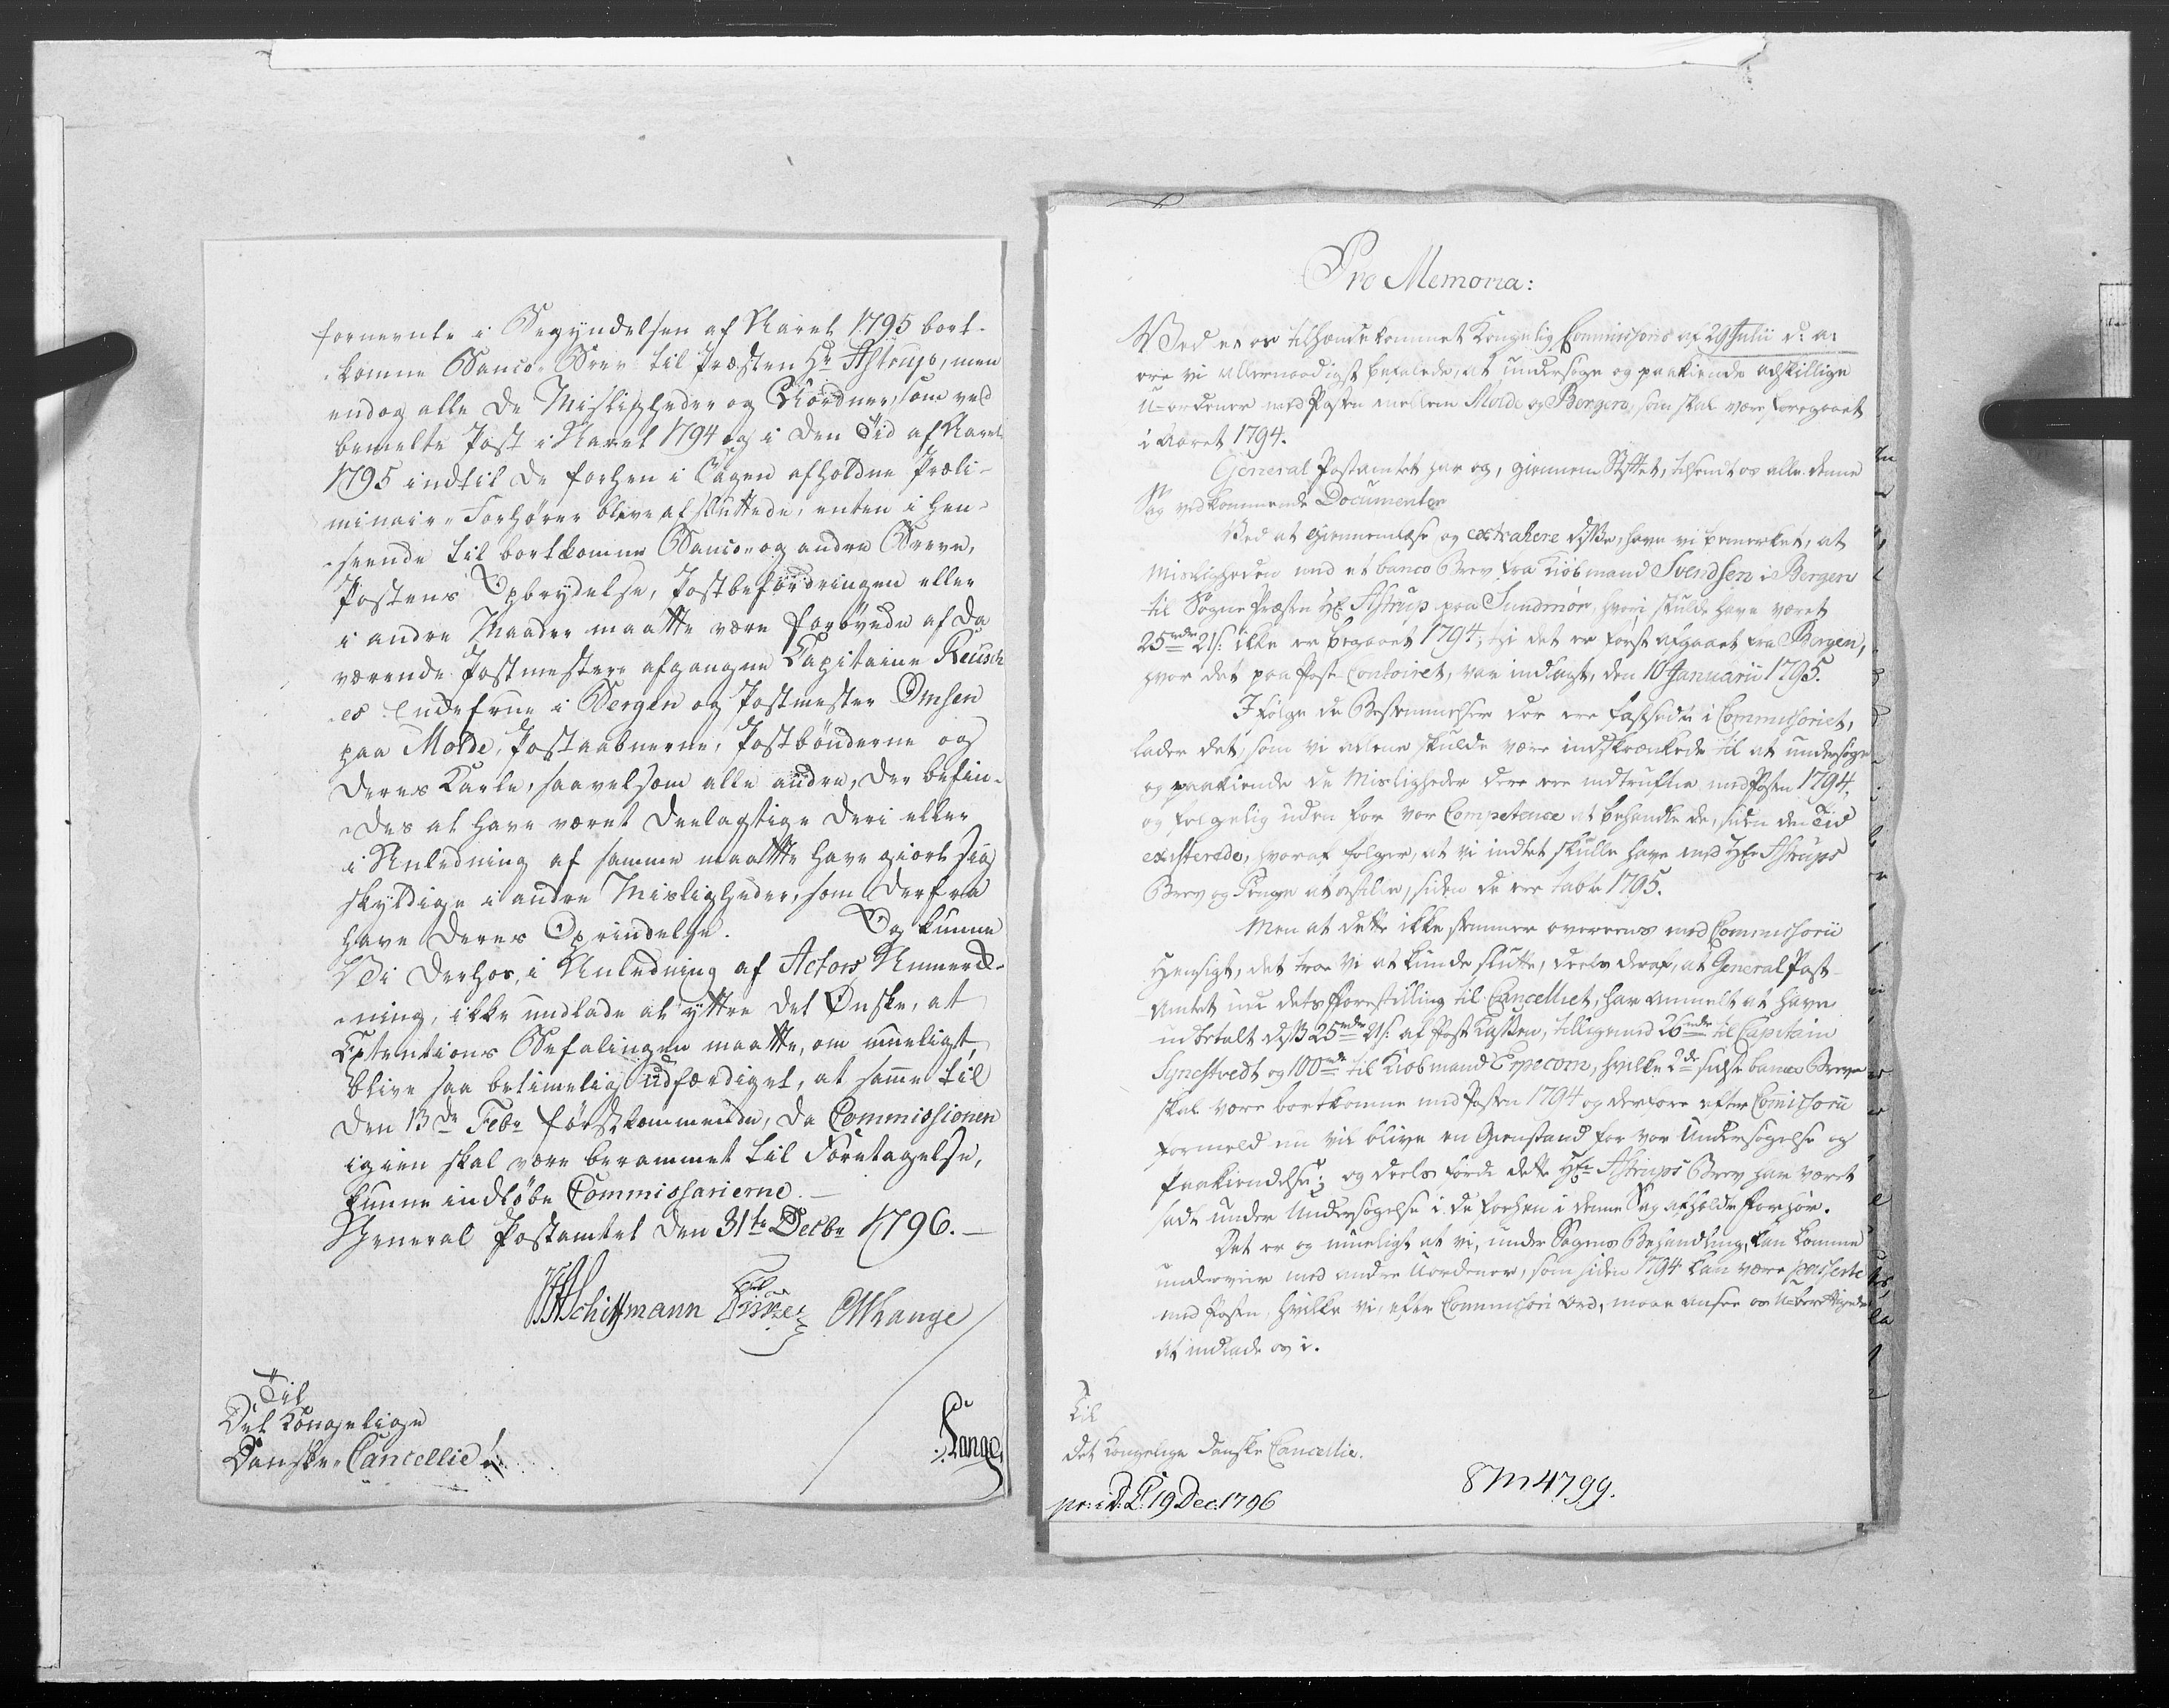 fornevnte i Begyndelsen af Aaret 1795 bort-
komne Banco-Brev til Præsten Hr Astrup, men
endog alle de Misligheder og Uordner, som ved
bemelte Post i Aaret 1794 og i den Tid af Aaret
1795 indtil de forhen i Sagen afholdne Præli-
minair-Forhører blive afsluttede, enten i Hen-
seende til bortkomne Banco- og andre Breve,
Postens Opbrydelse, Postbefordringen eller
i andre Maader maatte være forøvede af da
værende Postmestere afgangne Capitaine Reusch
es Enckefrue i Bergen og Postmester Omsen
paa Molde, Postaabnerne, Postbønderne og
deres Karle, saavelsom alle andre, der befin-
des at have været deelagtige deri eller
i Anledning af samme maatte have giort sig
skyldige i andre Misligheder, som derfra
have deres Oprindelse. Og kunne
Vi derhos, i Anledning af Actors Anmerk-
ning, ikke undlade at yttre det Ønske, at
Extentions Befalingen maatte, om mueligt,
blive saa betimelig udfærdiget, at samme til
den 13de Febr førstkommende, da Commissionen
igien skal være berammet til Foretagelse,
kunne indløbe Commissarierne. -
General Postamtet den 31te Decbr 1796. -
Schiffmann Lange
Til
Det Kongelige
Danske-Cancellie!
Lange
Pro Memoria:
Ved et os tilhændekommet Kongelig Commissoris af 29 Julii d: a:
ere vi allernaadigst befalede, at undersøge og paakiende adskillige
U-ordener med Posten mellem Molde og Bergen, som skal være foregaaet
i Aaret 1794.
General Postamtet har og, giennem Stiftet, tilsendt os alle denne
Sag vedkommende Documenter
Ved at giennemlæse og extrahere disse, have vi bemerket, at
Misligheden med et banco Brev fra Kiøbmand Svendsen i Bergen
til Sogne Præsten Hr Astrup paa Sundmør, hvori skulde have været
25rdr 21s: ikke er begaaet 1794, thi det er først afgaaet fra Bergen,
hvor det paa Post-Contoiret, var indlagt, den 10 Januarii 1795.
I følge de Bestemmelser der ere fastsadte i Commissoriet,
lader det, som vi allene skulde være indskrænkede til at undersøge
og paakiende de Misligheder der ere indtrufne med Posten 1794,
og følgelig uden for vor Competence at behandle de, siden den Tid
existerede, hvoraf følger, at vi indtet skulle have med Hr Astrups
Brev og Penge at bestille, siden de ere tabte 1795.
Men at dette ikke stemmer overeens med Commissorii
Hensigt, det troe vi at kunde slutte, deels deraf, at General Post-
Amtet udi dets Forestilling til Cancelliet, har anmelt at have
udbetalt disse 25rdr 21s: af Post Kassen, tilligemed 26rdr til Capitain
Synestvedt og 100rdr til Kiøbmand Eppecorn, hvilke 2de sidste banco Breve
skal være bortkomne med Posten 1794 og derfore efter Commissorii
formeld nu vil blive en Gienstand for vor Undersøgelse og
Paakiendelse; og deels fordi dette Hr Astrups Brev har været
sadt under Undersøgelse i de forhen i denne Sag afholdte Forhør.
Det er og mueligt at vi, under Sagens Behandling, kan komme
underveir med andre Uordener, som siden 1794 kan være passerte
med Posten, hvilke vi, efter Commissorii Ord, maae ansee os U-berettigede
at indlade os i.
Til
det Kongelige danske Cancellie.
pr: i D: C: 19 Dec: 1796
8 M 4799.